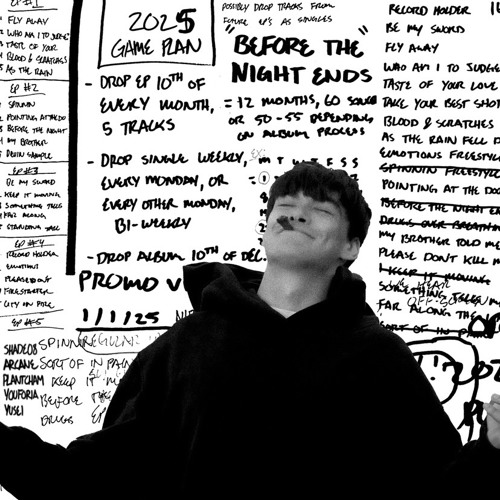 EP #1
FLY AWAY
WHO AM I TO JUDGE
TASTE OF YOUR
BLOOD & SCRATCHES
AS THE RAIN
EP #2
SPINNIN
POINTING AT THE DO
BEFORE THE NIGHT
MY BROTHER
DRAIN SAMPLE
EP #3
BE MY SWORD
KEEP IT MOVING
SOMETHING TELLS
FAR ALONG
STANDING TALL
EP #4
RECORD HOLDER
EMOTIONS
PLEASE DON'T
FIRESTARTER
CITY ON FIRE
EP #5
SHADE08
ARCANE
PLANTCHAM
YOUFORIA
YUSEI
2025
GAME PLAN
- DROP EP 10TH OF
EVERY MONTH,
5 TRACKS
- DROP SINGLE WEEKLY,
EVERY MONDAY, OR
EVERY OTHER MONDAY,
BI-WEEKLY
- DROP ALBUM 10TH OF DEC.
PROMO V
1/1/25
SPINN
SORT OF IN PAIN
KEEP IT M
BEFORE THE
DRUGS
POSSIBLY DROP TRACKS FROM
FUTURE EP'S AS SINGLES
"BEFORE THE
NIGHT ENDS"
= 12 MONTHS, 60 SONGS
OR 50-55 DEPENDING
ON ALBUM PROCESS
EX:
M T W T F S S
RECORD HOLDER
BE MY SWORD
FLY AWAY
WHO AM I TO JUDGE
TASTE OF YOUR LOVE
TAKE YOUR BEST SHOT
BLOOD & SCRATCHES
AS THE RAIN FELL D
EMOTIONS FREESTYLE
SPINNIN FREESTYLE
POINTING AT THE DO
BEFORE THE NIGHT EN
DRUGS OVER BREATHIN
MY BROTHER TOLD ME
PLEASE DON'T KILL M
I KEEP IT MOVING
SOMETHING TELLS M
FAR ALONG THE
SORT OF IN PAIN